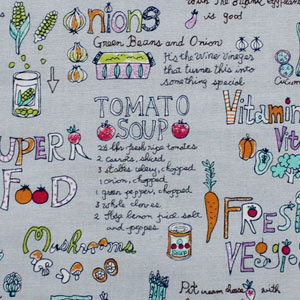 With The
is good
Onions
Green Beans and Onion
It's the Wine Vinegar
that turns this into
something special
Cucum
TOMATO
SOUP
2½ lbs fresh ripe tomatoes
2 carrots, sliced
3 stalks celery, chopped
1 onion, chopped
1 green pepper, chopped
3 whole cloves
2 tbsp lemon juice, salt
and pepper
Vitamin
Vit
SUPER
FOOD
FRESH
VEGGIE
Mushrooms
SOUP
Put cream cheese with